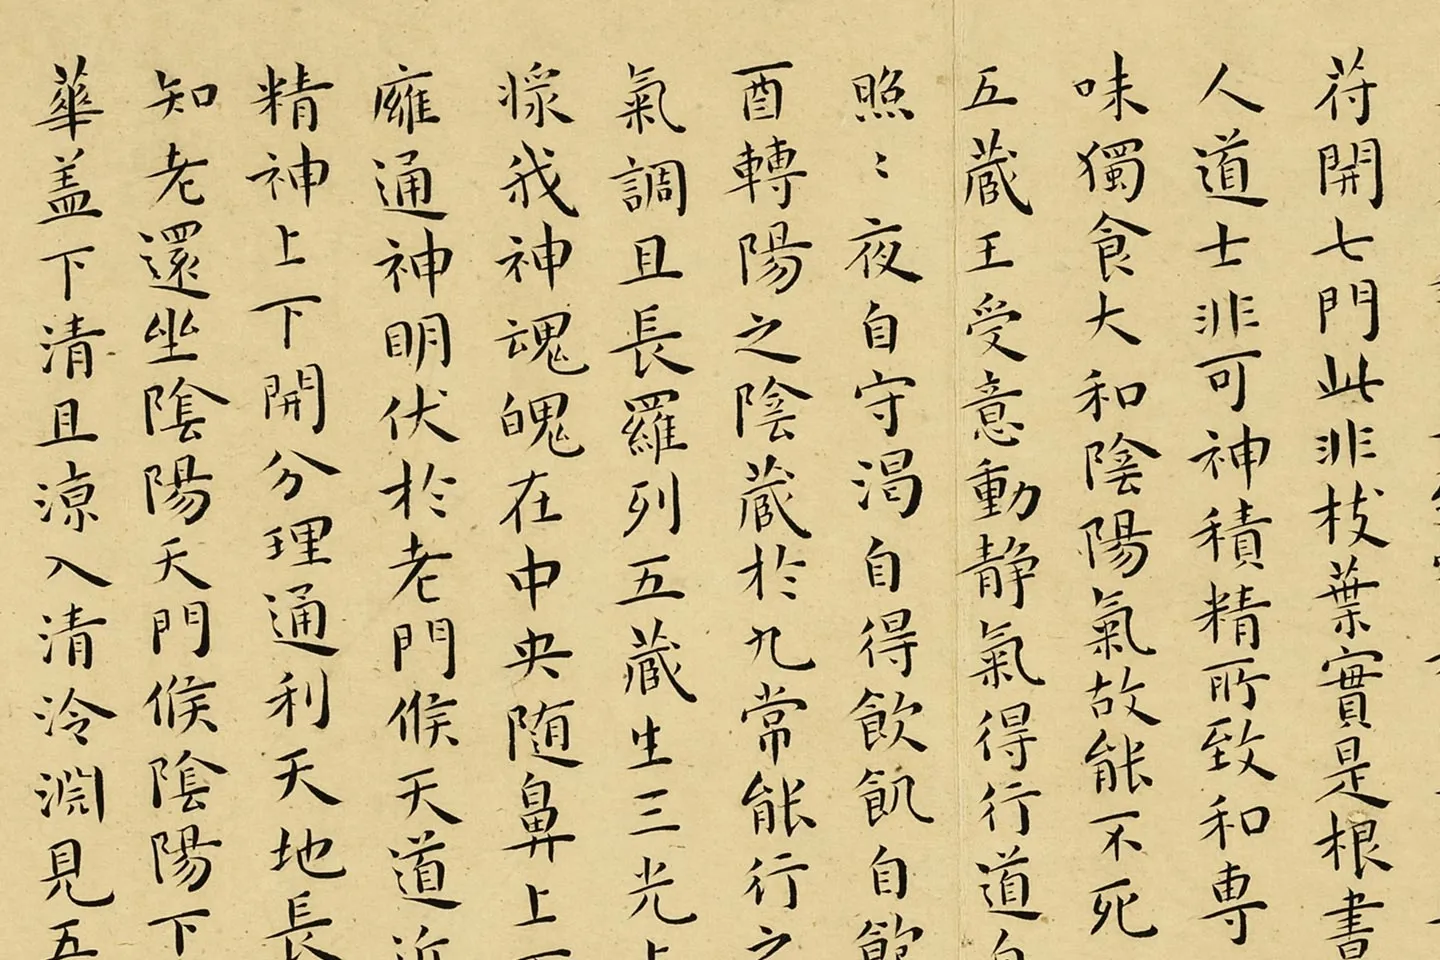 苻開七門此非枝葉實是根書
人道士非可神積精所致和專
味獨食大和陰陽氣故能不死
五藏王受意動静氣得行道自
照〻夜自守渴自得飲飢自飽
酉轉陽之陰藏於九常能行之
氣調且長羅列五藏生三光上
㦿我神魂魄在中央随鼻上下
癰通神明伏於老門候天道近
精神上下開分理通利天地長
知老還坐陰陽天門候陰陽下
華盖下清且涼入清泠淵見五